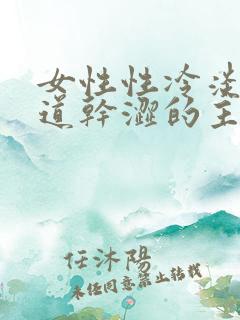 女性性冷淡
道幹澀的主
任沐陽
未經同意禁止轉載